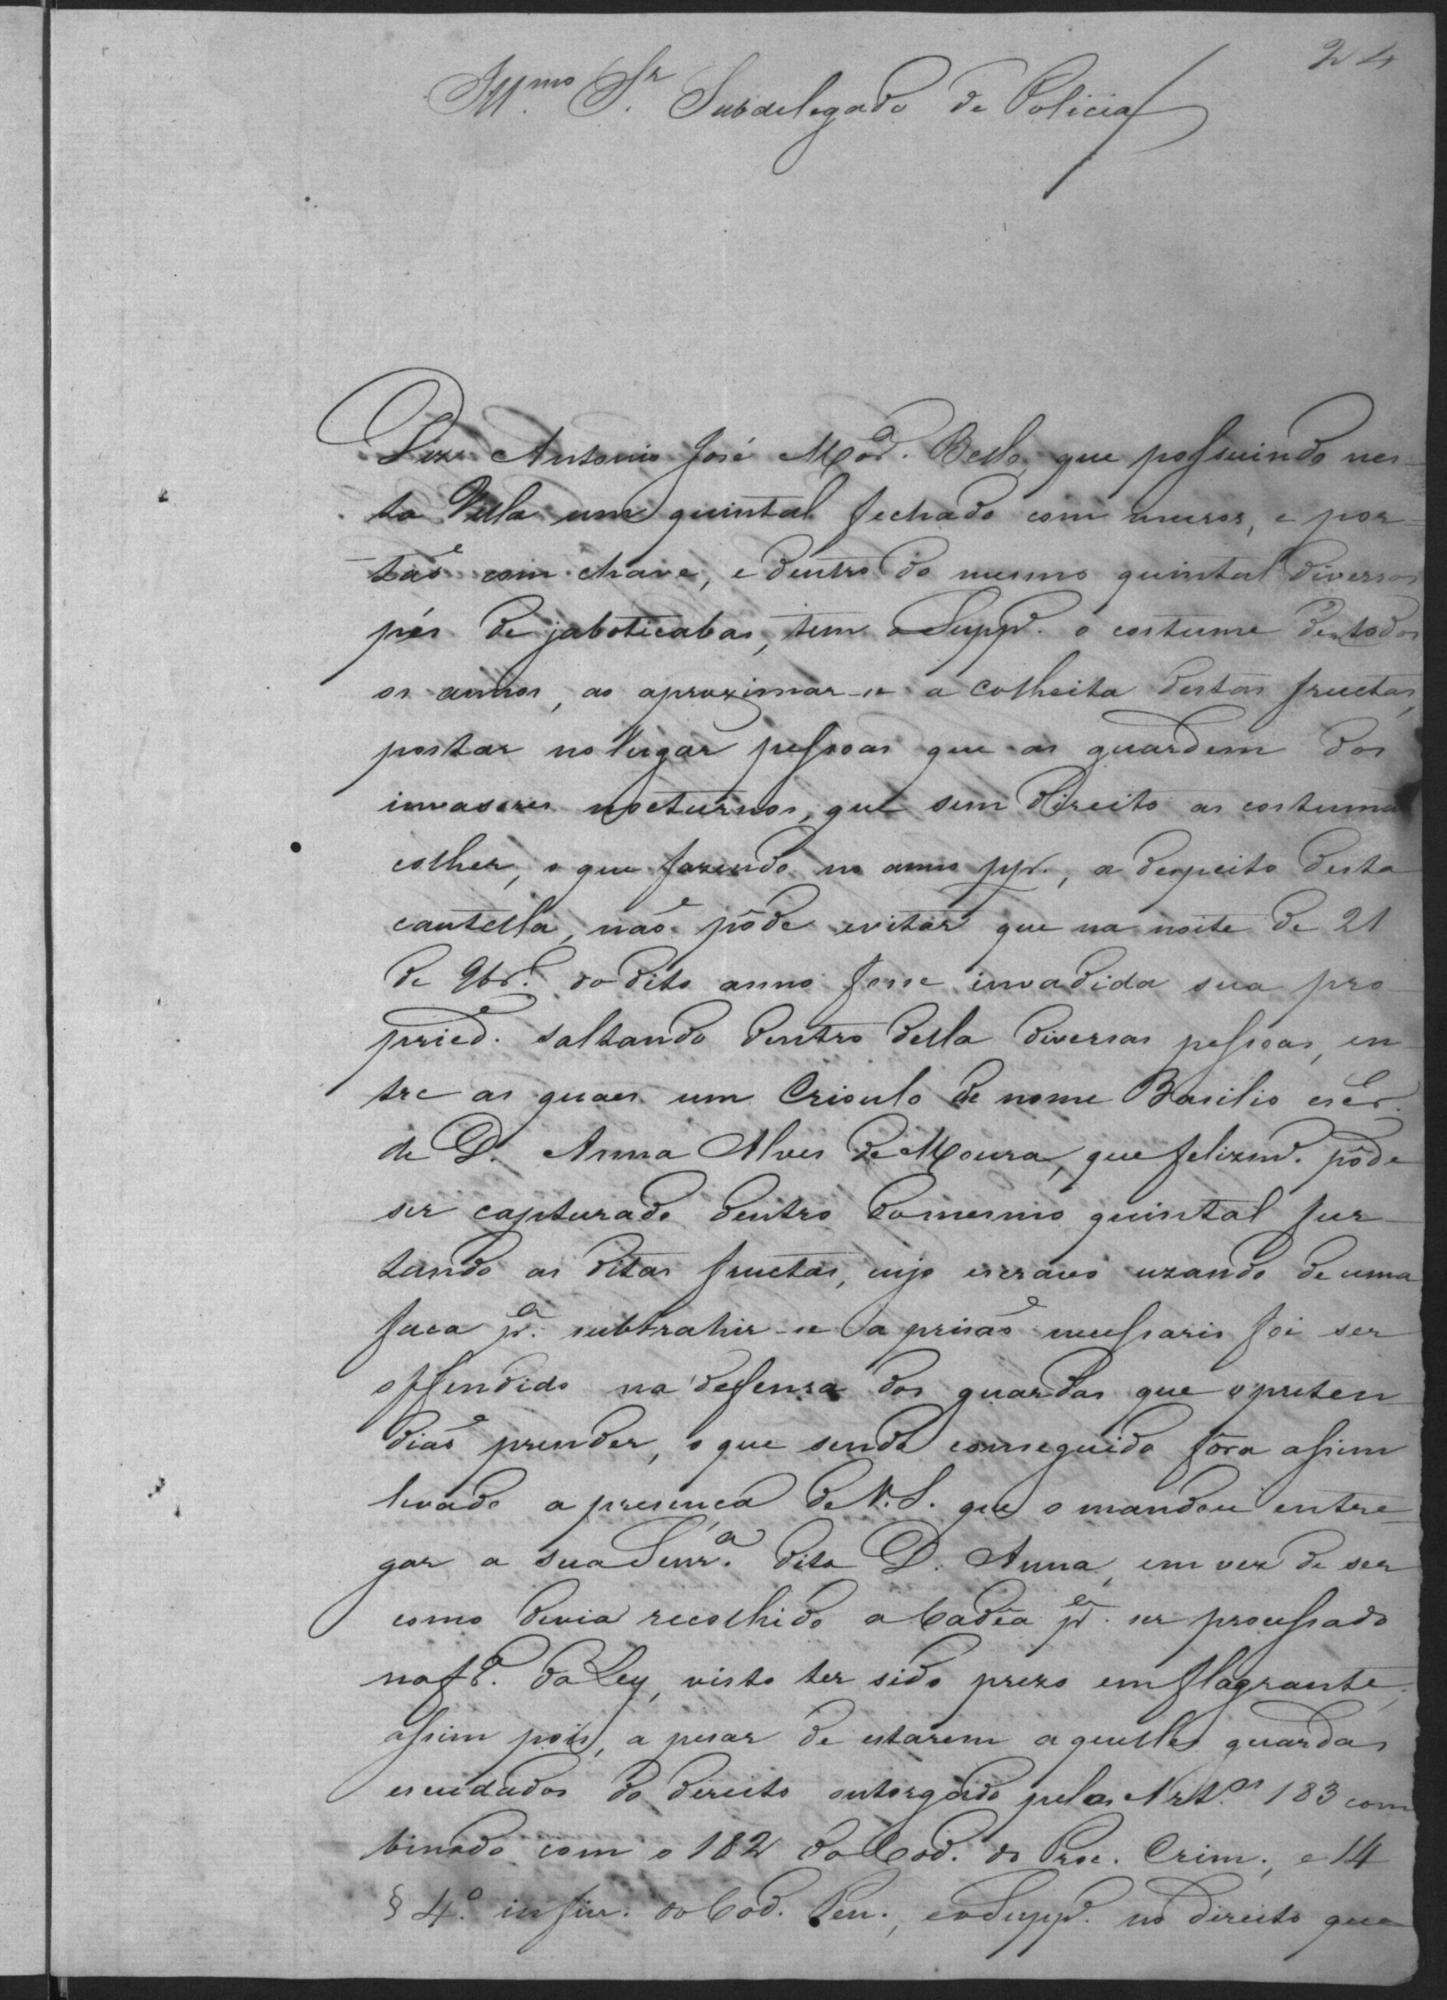 24
Ill.mo Sr. Subdelegado de Policia
Diz Antonio José Mad.o Bello, que possuindo nes-
ta Villa um quintal fechado com muros, e por-
tão com chave, e dentro do mesmo quintal diversos
pés de jaboticabas, tem o Supp.e o costume de todos
os annos, ao aproximar-se a colheita destas fructas,
postar no lugar pessoas que as guardem dos
invasores nocturnos, que sem direito as costumão
colher, o que fazendo no anno pp.o, a despeito desta
cautella, não pôde evitar que na noite de 21
de 9br.o do dito anno fosse invadida sua pro-
pried.e saltando dentro della diversas pessoas, en-
tre as quaes um Crioulo de nome Basilio escr.o
de D. Anna Alves de Moura, que felizm.e pôde
ser capturado dentro do mesmo quintal fur-
tando as ditas fructas, cujo escravo uzando de uma
faca p.a subtrahir-se a prisão necessario foi ser
offendido na defensa dos guardas que o preten-
dião prender, o que sendo conseguido fôra assim
levado a presença de V.S. que o mandou entre-
gar a sua Senr.a dita D. Anna, em vez de ser
como devia recolhido a Cadêa p.a ser processado
na f.a da Ley, visto ter sido prezo em flagrante,
assim pois, a pesar de estarem aquelles guardas
escudados do direito outorgado pelos Art.os 183 com
binado com o 182 do Cod. do Proc. Crim., e 14
§ 4.o in fin. do Cod. Pen., e o Supp.e no direito que